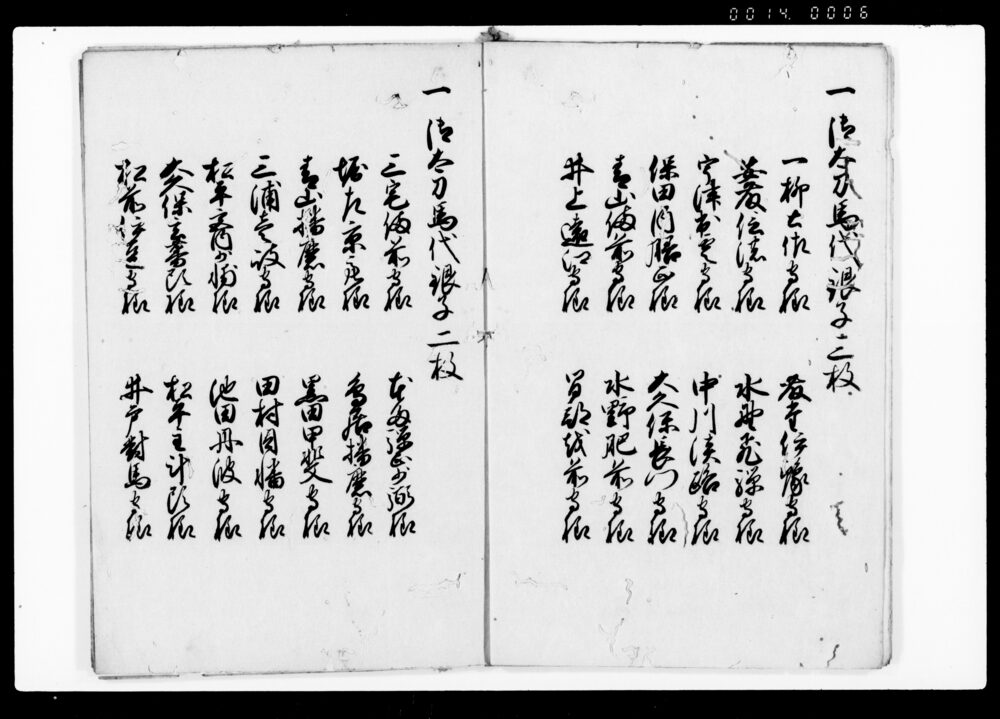 0014. 0006
一 御太刀馬代銀子三枚
一柳土佐守殿
安藤信濃守殿
守殿
保田内膳正殿
青山備前守殿
井上遠江守殿
藤堂伊豫守殿
水野飛騨守殿
中川淡路守殿
大久保長門守殿
水野肥前守殿
間部越前守殿
一 御太刀馬代銀子二枚
三宅備前守殿
堀左京亮殿
青山播磨守殿
三浦壱岐守殿
松平少輔殿
大久保頭殿
松前伊豆守殿
本多弾正少弼殿
鳥居播磨守殿
黒田甲斐守殿
田村因幡守殿
池田丹波守殿
松平主計頭殿
井戸對馬守殿